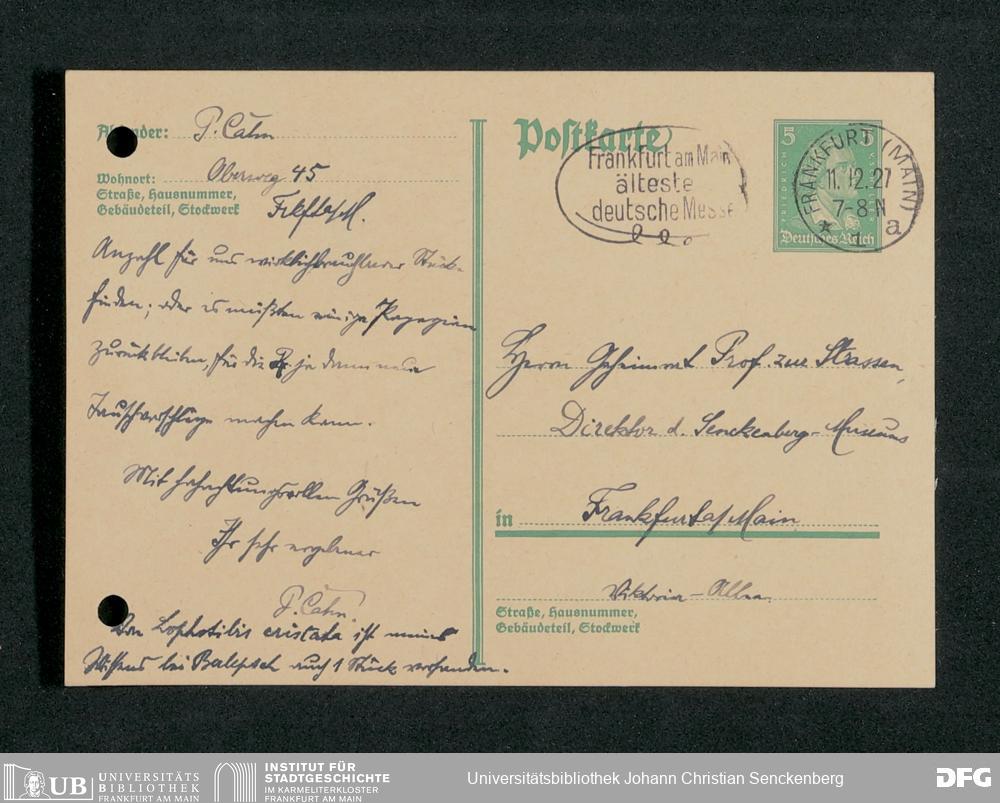 Absender: P. Cahn
Wohnort: Oberweg 45
Straße, Hausnummer,
Gebäudeteil, Stockwerk
Anzahl für uns wirklich brauchbarer Stücke
finden; oder es müßten einige Papageien
zurückbleiben, für die P. ja dann neue
Tauschvorschläge machen kann.
Mit hochachtungsvollen Grüßen
Ihr sehr ergebener
P. Cahn.
Von Lophotibis cristata ist meines
Wissens bei Berlepsch auch 1 Stück vorhanden.
Postkarte
Frankfurt am Main
älteste
deutsche Messe
5 5
Deutsches Reich
FRANKFURT (MAIN)
11.12.27
7-8 N
* a
Herrn Geheimrat Prof. zur Strassen,
Direktor d. Senckenberg-Museums
in Frankfurt a/Main
Viktoria-Allee.
Straße, Hausnummer,
Gebäudeteil, Stockwerk
UB UNIVERSITÄTS
BIBLIOTHEK
FRANKFURT AM MAIN
INSTITUT FÜR
STADTGESCHICHTE
IM KARMELITERKLOSTER
FRANKFURT AM MAIN
Universitätsbibliothek Johann Christian Senckenberg
DFG